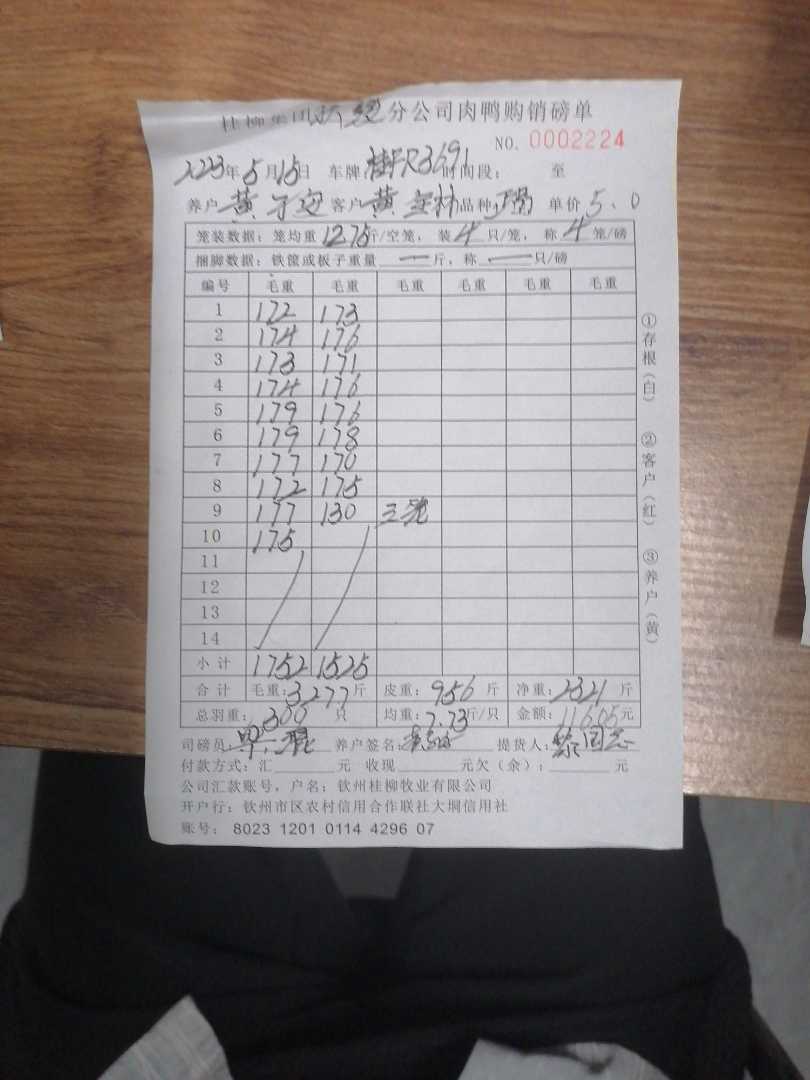 桂柳集团 分公司肉鸭购销磅单
NO. 0002224
2023年5月15日 车牌 桂FR3691 时间段： 至
养户 黄 客户 黄 林 品种 单价 5.0
笼装数据：笼均重 12.75 斤/空笼，装 4 只/笼，称 4 笼/磅
捆脚数据：铁筐或板子重量 一 斤，称 一 只/磅
编号 毛重 毛重 毛重 毛重 毛重 毛重
1 172 173
2 174 176
3 173 171
4 174 176
5 179 176
6 179 178
7 177 170
8 172 175
9 177 130 三笼
10 175
11
12
13
14
小计 1752 1525
合计 毛重：3277斤 皮重：956斤 净重：2321斤
总羽重：300只 均重：7.73斤/只 金额：11605元
司磅员 养户签名： 提货人：黎国志
付款方式：汇 元 收现 元欠（余）： 元
公司汇款账号，户名：钦州桂柳牧业有限公司
开户行：钦州市区农村信用合作联社大垌信用社
账号： 8023 1201 0114 4296 07
①存根（白） ②客户（红） ③养户（黄）